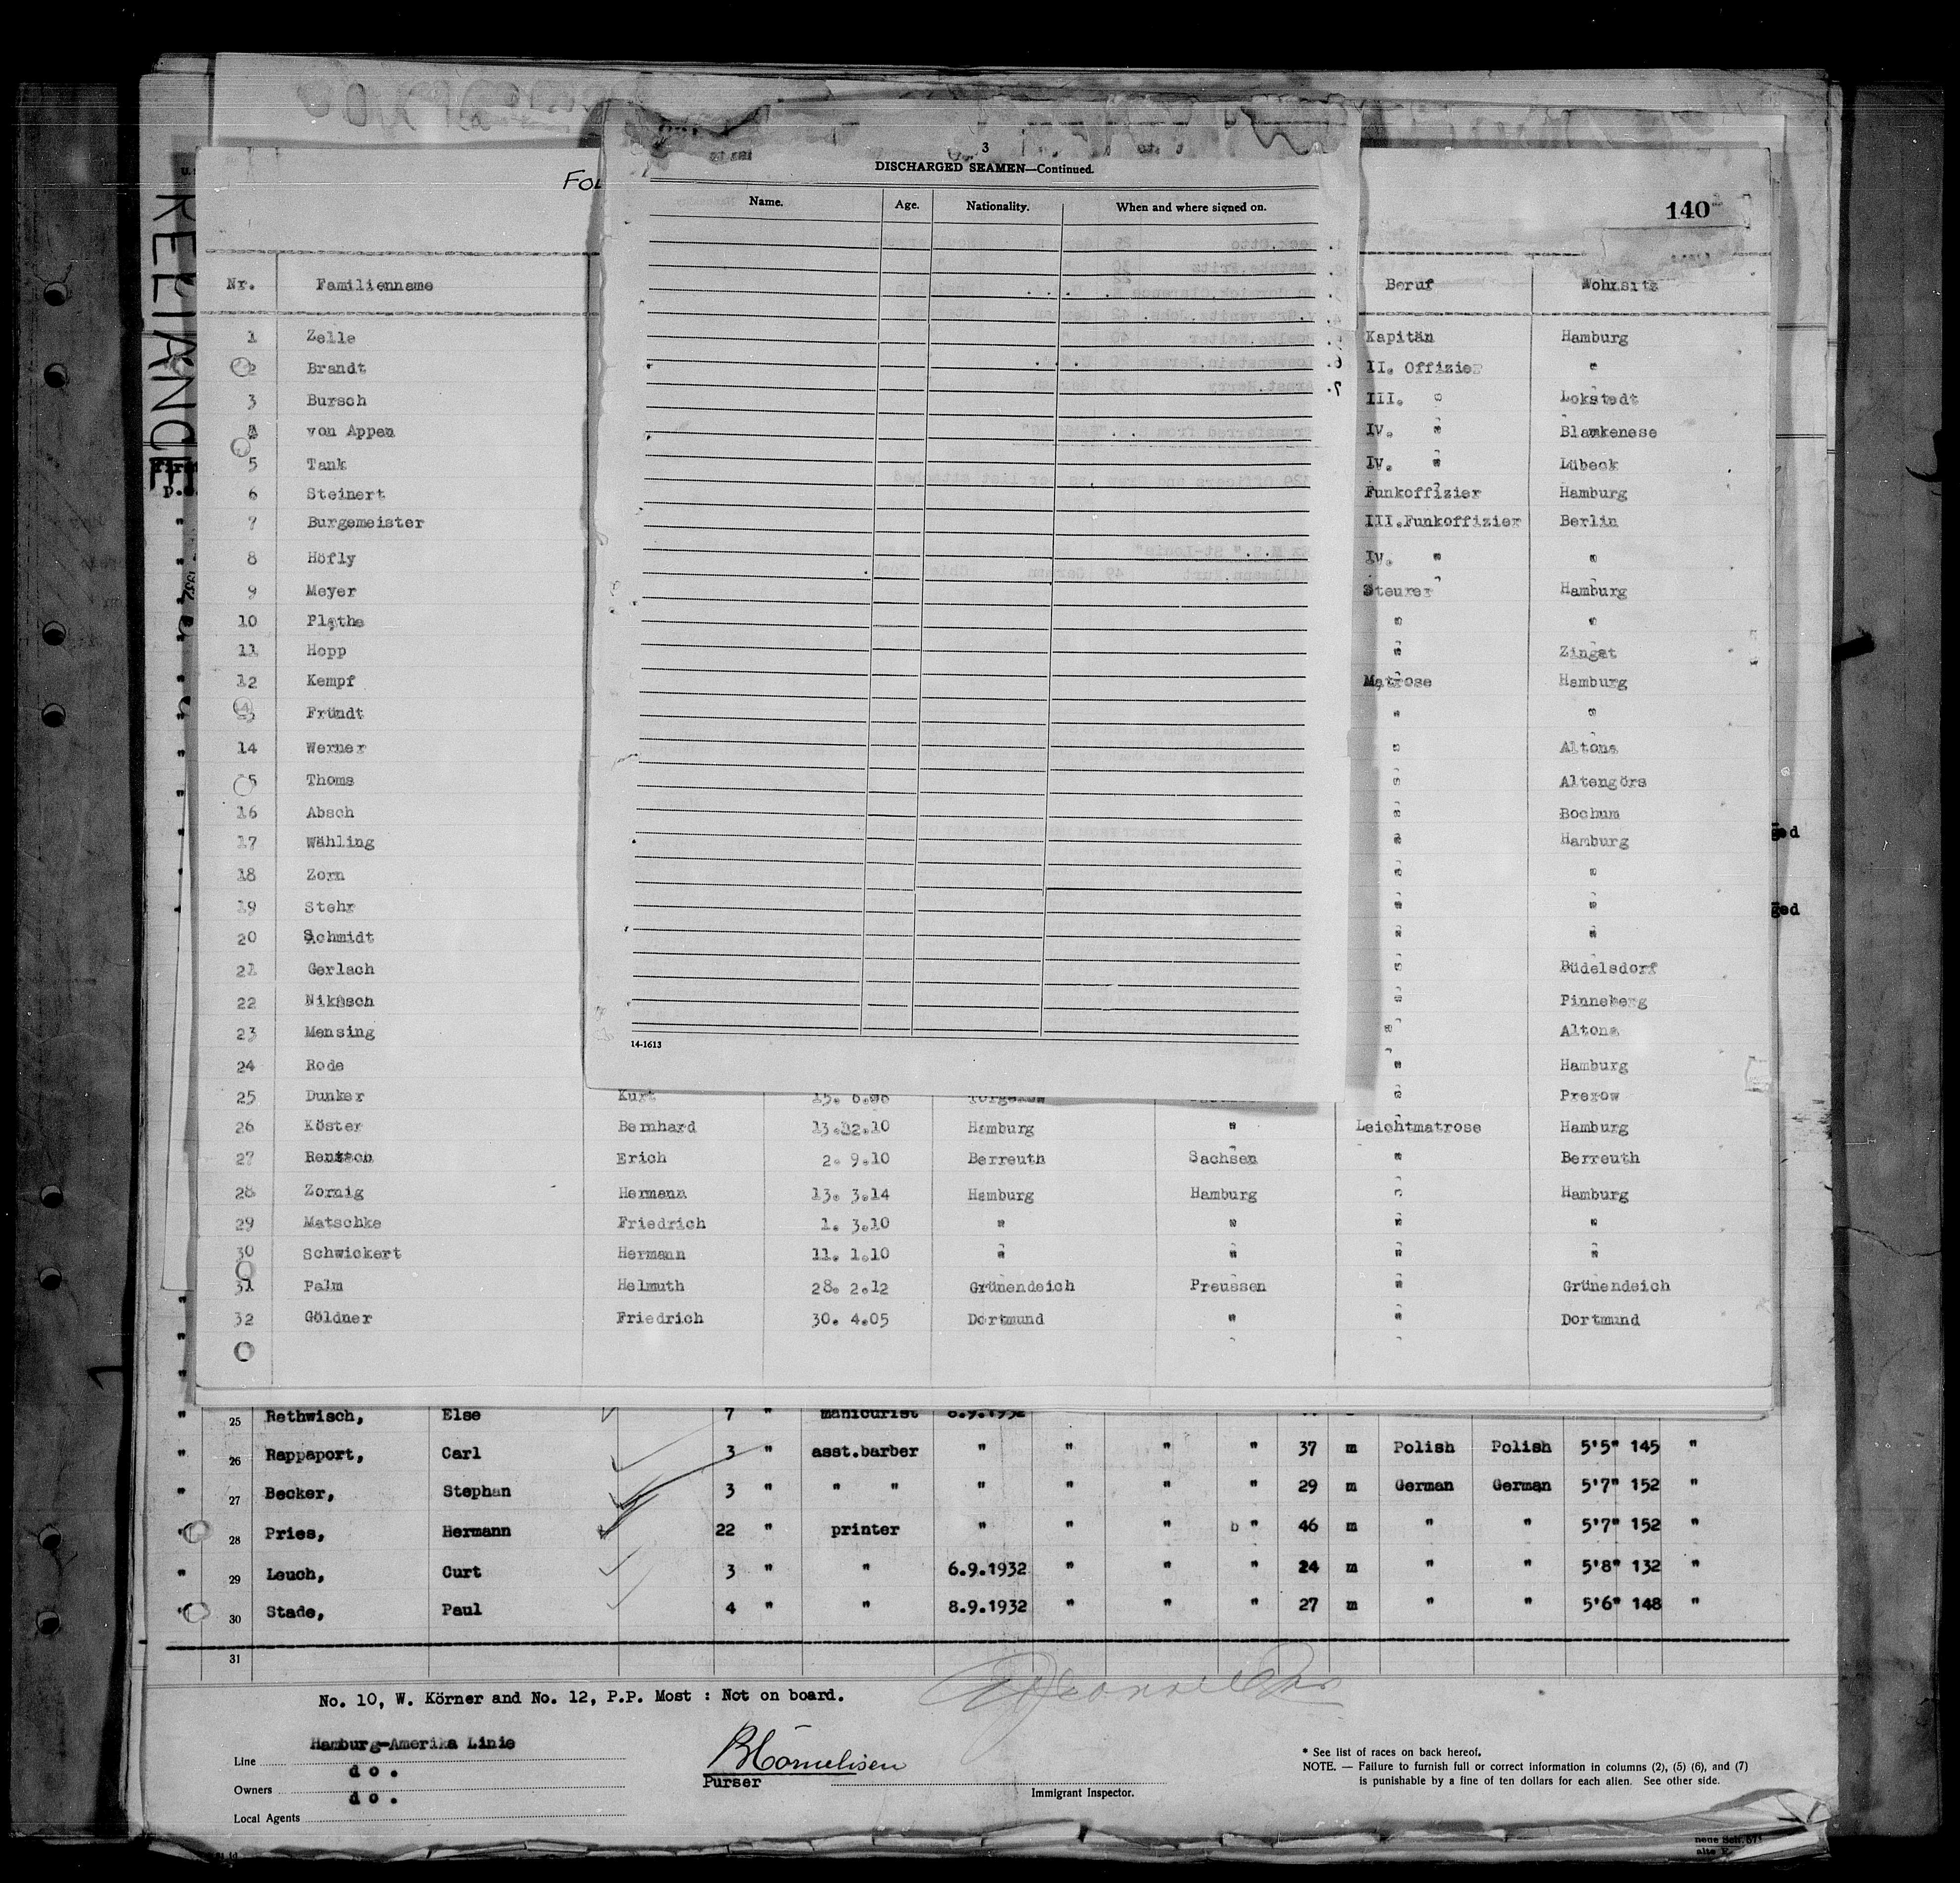 3
DISCHARGED SEAMEN—Continued.
Name. Age. Nationality. When and where signed on.
14-1613
140
RELIANCE
Nr. Familienname Beruf Wohnsitz
1 Zelle Kapitän Hamburg
2 Brandt II. Offizier "
3 Bursch III. " Lokstedt
4 von Appen IV. " Blankenese
5 Tank IV. " Lübeck
6 Steinert Funkoffizier Hamburg
7 Burgemeister III.Funkoffizier Berlin
8 Höfly IV. " "
9 Meyer Steurer Hamburg
10 Plathe " "
11 Hopp " Zingst
12 Kempf Matrose Hamburg
Fründt " "
14 Werner " Altona
15 Thoms " Altengörs
16 Absch " Bochum
17 Wähling " Hamburg
18 Zorn " "
19 Stehr " "
20 Schmidt " "
21 Gerlach " Büdelsdorf
22 Nikasch " Pinneberg
23 Mensing " Altona
24 Rode " Hamburg
25 Dunker Kurt " Prerow
26 Köster Bernhard 13.12.10 Hamburg " Leichtmatrose Hamburg
27 Rentsch Erich 2. 9.10 Berreuth Sachsen " Berreuth
28 Zornig Hermann 13. 3.14 Hamburg Hamburg " Hamburg
29 Matschke Friedrich 1. 3.10 " " " "
30 Schwickert Hermann 11. 1.10 " " " "
31 Palm Helmuth 28. 2.12 Grünendeich Preussen " Grünendeich
32 Göldner Friedrich 30. 4.05 Dortmund " " Dortmund
" 25 Rethwisch, Else 7 " manicurist 8.9.1932
" 26 Rappaport, Carl 3 " asst.barber " " " " 37 m Polish Polish 5'5" 145 "
" 27 Becker, Stephan 3 " " " " " " " 29 m German German 5'7" 152 "
" 28 Pries, Hermann 22 " printer " " " b " 46 m " " 5'7" 152 "
" 29 Leuch, Curt 3 " " 6.9.1932 " " " 24 m " " 5'8" 132 "
" 30 Stade, Paul 4 " " 8.9.1932 " " " 27 m " " 5'6" 148 "
31
No. 10, W. Körner and No. 12, P.P. Most : Not on board.
Line Hamburg-Amerika Linie
Owners d o .
Local Agents d o .
BCornelisen
Purser
Immigrant Inspector.
* See list of races on back hereof.
NOTE. — Failure to furnish full or correct information in columns (2), (5) (6), and (7)
is punishable by a fine of ten dollars for each alien. See other side.